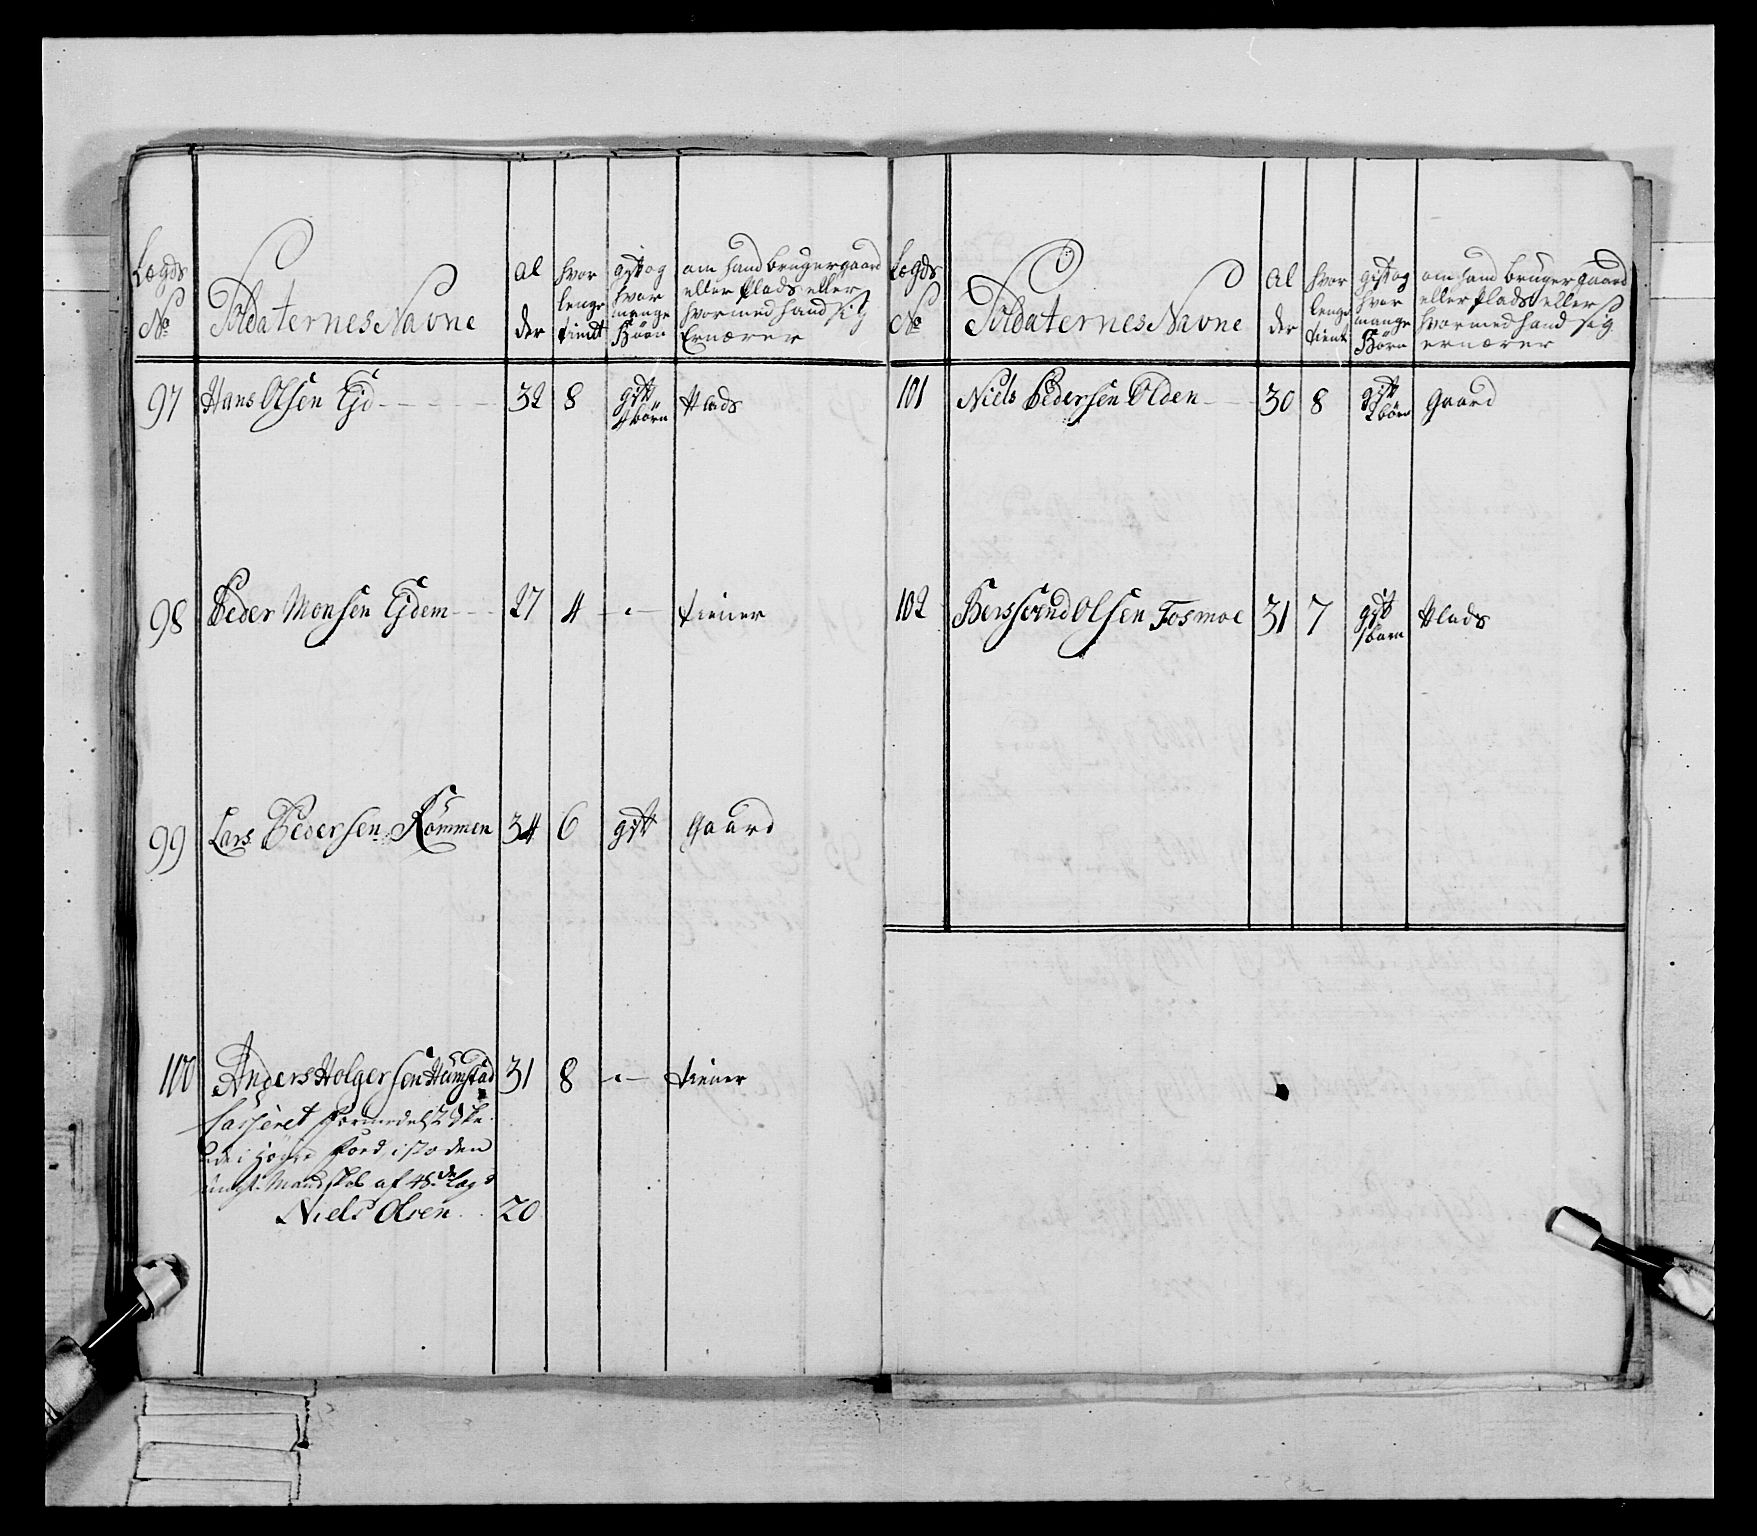 Lægds No | Soldaternes Navne | Al der | hvor lenge tient | gift og hvor mange Börn | om hand bruger gaard eller Plads eller hvormed hand sig Ernærer
97 | Hans Olsen Ejd | 32 | 8 | gift börn | Plads
98 | Peder Monsen Ejdem | 27 | 4 | - | tiener
99 | Lars Pedersen Römmen | 34 | 6 | gift | Gaard
100 | Anders Holgersen Hamstad | 31 | 8 | - | tiener
Casseret formedelst
i den
Mandskab af 48de læg
Niels Olsen | 20
Lægds No | Soldaternes Navne | Al der | hvor lenge tient | gift og hvor mange Börn | om hand bruger gaard eller Plads eller hvormed hand sig ernærer
101 | Niels Pedersen Olden | 30 | 8 | gift 2 börn | Gaard
102 | Olsen Fosmoe | 31 | 7 | gift 1 barn | Plads